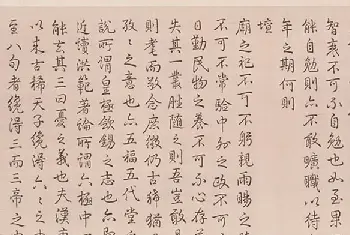 智衷不可不自勉也如至果
能自勉則亦不敢曠職以待
年之期何則
壇
廟之祀不可不躬親雨暘之
不可不常驗中外之政不可
日勤民物之養不可不心存
失其一叢脞隨之則吾豈敢
則耄而敬念庶徵仍古稀猶
孜之意也六五福五代堂
說所謂皇極斂錫之志也亦即
近讀洪範著論所謂六極中
能去其三曰憂之義也夫漢
以來古稀天子纔得六六之中
至八旬者纔得三而三帝之中